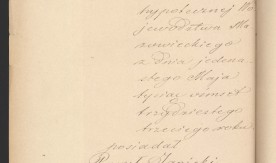 hypotecznej Wo
jewództwa Ma
zowieckiego
z dnia jedena
stego Maja
tysiąc ośmset
trzydziestego
trzeciego roku
posiadał